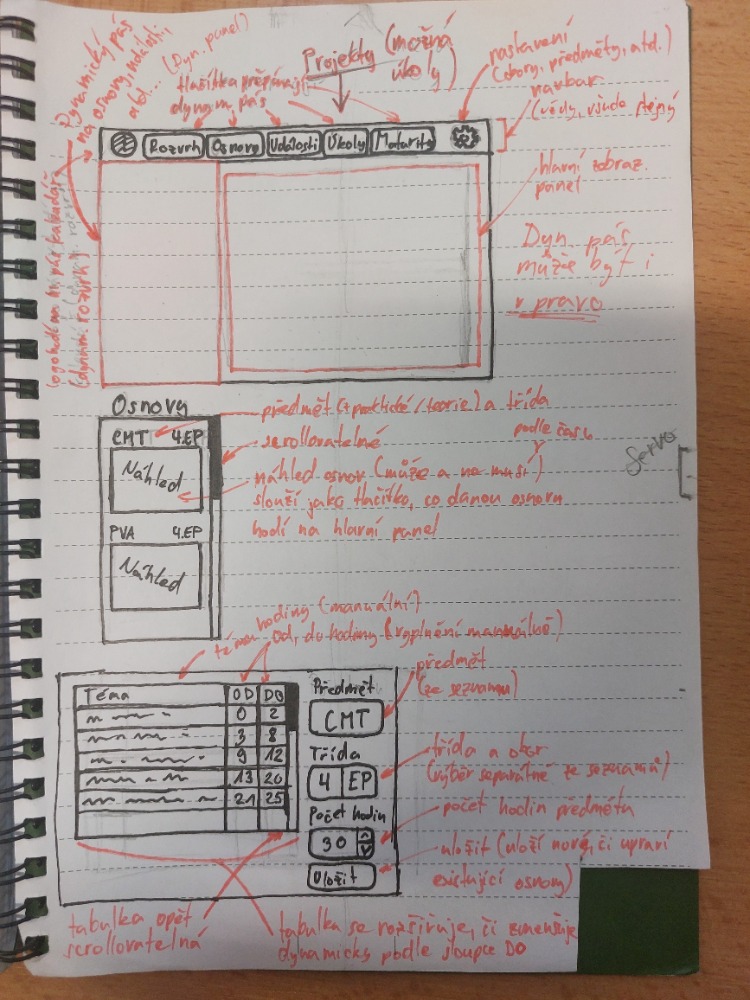 Dynamický pás
na osnovy, události,
atd... (Dyn. panel)
tlačítka přepínají
dynam. pás
Projekty (možná
úkoly)
nastavení
(obory, předměty, atd.)
navbar
(vždy, všude stejný
Rozvrh
Osnovy
Události
Úkoly
Maturity
hlavní zobraz.
panel
Dyn. pás
může být i
v pravo
rozvrh)
Osnovy
CMT 4.EP
Náhled
PVA 4.EP
Náhled
předmět (+praktické/teorie) a třída
podle času
scrollovatelné
náhled osnov (může a nemusí)
slouží jako tlačítko, co danou osnovu
hodí na hlavní panel
Servo
téma hodiny (manuální)
od, do hodiny (vyplnění manuálně)
předmět
(ze seznamu)
Téma OD DO
0 2
3 8
9 12
13 20
21 25
Předmět
CMT
Třída
4 EP
Počet hodin
30
Uložit
třída a obor
(výběr separátně ze seznamů)
počet hodin předmětu
uložit (uloží nové, či upraví
existující osnovy)
tabulka opět
scrollovatelná
tabulka se rozšiřuje, či zmenšuje
dynamicky podle sloupce DO